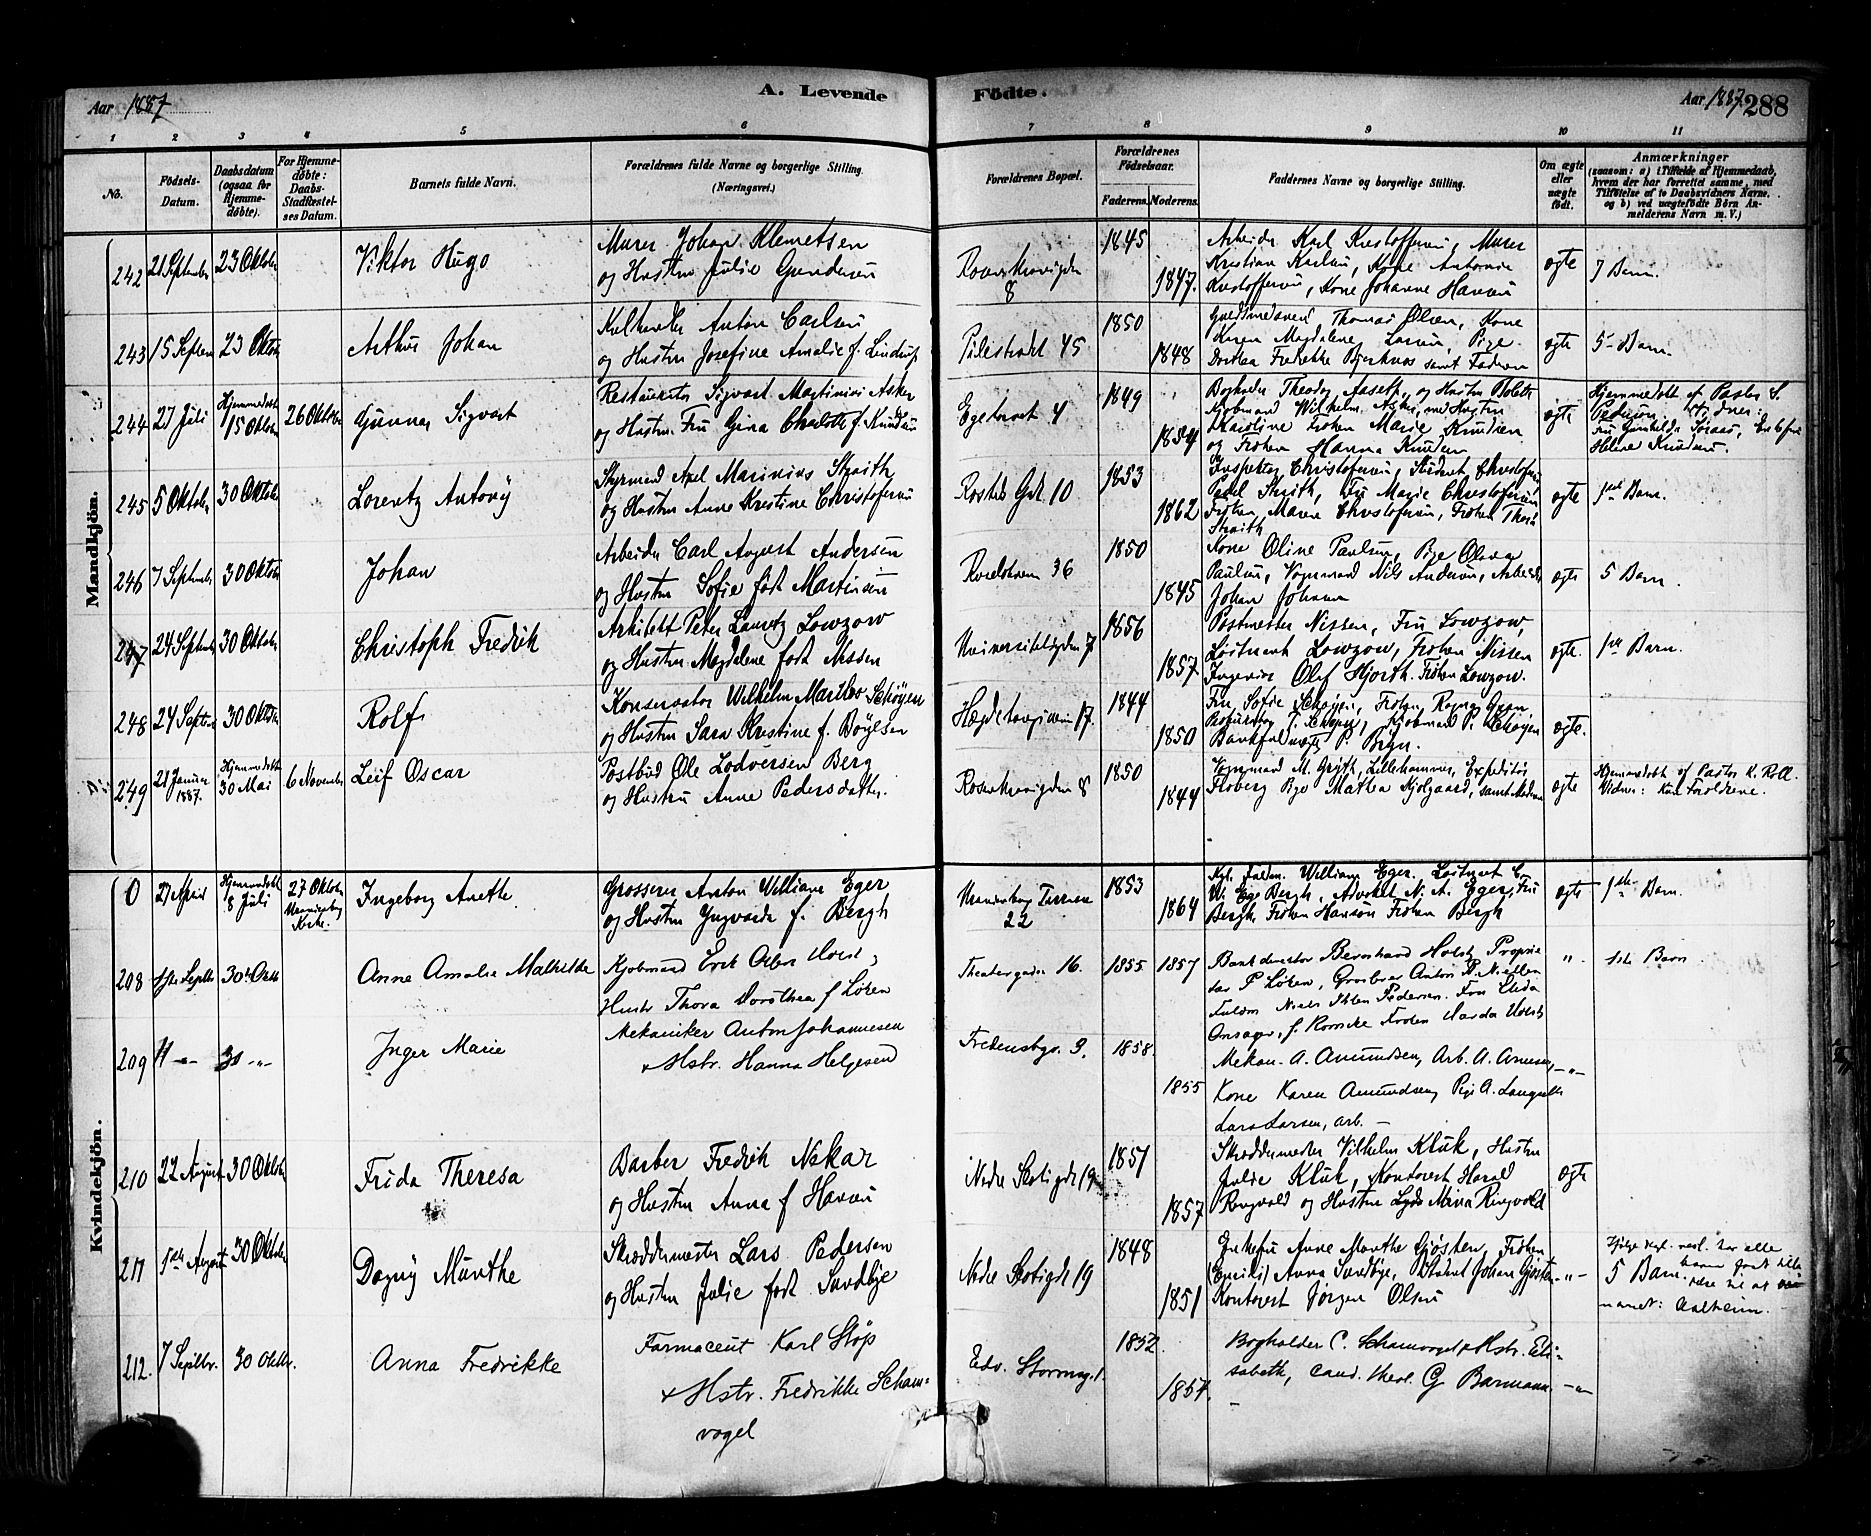 Aar 1887
A. Levende
Fødte.
Aar 1887. 288
1 2 3 4 5 6 7 8 9 10 11
No.
Fødsels-Datum.
Daabsdatum (ogsaa for Hjemmedøbte).
For Hjemmedøbte: Daabs-Stadfæstelses Datum.
Barnets fulde Navn.
Forældrenes fulde Navne og borgerlige Stilling. (Næringsvei.)
Forældrenes Bopæl.
Forældrenes Fødselsaar.
Faderens. Moderens.
Faddernes Navne og borgerlige Stilling.
Om ægte eller uægte født.
Anmærkninger
(saasom: a) i Tilfælde af Hjemmedaab, hvem der har forrettet samme, med Tilføielse af to Daabsvidners Navne. og b) ved uægtefødte Børn Anmelderens Navn m. V.)
Mandkjön.
242 21 September 23 Oktober Viktor Hugo
Murer Johan Klemetsen
og Hustru Julie Gundersen
8
1845
1847.
Arbeider Karl Kristoffersen, Murer
Kristian Karlsen, Kone Antonie
Kristoffersen, Kone Johanne Hansen
ægte
7 Barn.
243 15 Septem 23 Oktob Arthur Johan
Anton Carlsen
og Hustru Josefine Amalie f. Lindrup
Pilestrædet 45
1850
1848
Guldsmedsvend Thomas Olsen, Kone
Karen Magdalene Larsen, Pige
Fredrikke Bjerknes samt Faderen
ægte
5 Barn.
244 27 Juli Hjemmedøbt 15 Oktober 26 Oktober Gunnar Sigvart
Restauratør Sigvart Martinius Asker
og Hustru Fru Gina Charlotte f. Knudsen
Egetorvet 4
1849
1854
Theodor Aaseth, og Hustru
Kjøbmand Wilhelm Asker med Hustru
Karoline Frøken Marie Knudsen
og Frøken Hanna Knudsen
ægte
Hjemmedøbt af Pastor S.
Pedersen. Vidner:
Fru Gunhilda Enkefru
Helene Knudsen.
245 5 Oktober 30 Oktober Lorentz Antony
Styrmand Axel Marinius Straith
og Hustru Anne Kristine Christofersen
Rosteds Gd. 10
1853
1862
Inspektør Christofersen, Student Christofersen
Paul Straith, Fru Marie Christofersen
Frøken Maren Christofersen, Frøken Thora
Straith
ægte
1ste Barn.
246 7 September 30 Oktober Johan
Arbeider Carl August Andersen
og Hustru Sofie født Martinsen
36
1850
1845
Kone Oline Paulsen, Pige Oleva
Paulsen, Vognmand Nils Andersen, Arbeider
Johan Johansen
ægte
5 Barn.
247 24 September 30 Oktober Christoph Fredrik
Arkitekt Peter Lauretz Lowzow
og Hustru Magdalene født Nissen
Universitetsgaden 7
1856
1857.
Postmester Nissen, Fru Lowzow,
Løitnant Lowzow, Frøken Nissen
Ingeniør Olaf Hjorth. Frøken Lowzow.
ægte.
1ste Barn.
248 24 Septem 30 Oktober Rolf
Konservator Wilhelm Marthov Schøyen
og Hustru Sara Kristine f. Bøylsen
Hægdehaugsveien 17.
1844
1850
Fru Sofie Schøyen, Frøken Ragna Gran
T. Schøyen, Kjøbmand P. Schøyen
P. Bryn.
ægte.
249 21 Januar 1887. Hjemmedøbt 30 Mai 6 November Leif Oscar
Postbud Ole Lodversen Berg
og Hustru Anne Pedersdatter.
Rosenkransgaden 8
1850
1844
Vognmand M. Grytt, Lillehammer, Expeditør
Floberg Pige Mathea Kjølgaard, samt Moderen
ægte
Hjemmedøbt af Pastor K. Roll.
Vidner: Kun Forældrene.
Kvindekjön.
0 27 April Hjemmedøbt 8 Juli 27 Oktober Uranienborg Kirke. Ingeborg Anethe.
Grosserer Anton William Eger
og Hustru Yngvarda f. Bergh
Uranienborg Terrasse
22
1853
1864
William Eger. Løitnant C.
Bergh, Advokat N. A. Eger, Fru
Bergh Frøken Hanson Frøken Bergh
ægte
1ste Barn.
208 1ste Septbr 30te Octbr Anne Amalie Mathilde
Kjøbmand Erik Holst,
Hustr Thora Dorothea f Lören
Theatergaden 16.
1855
1857
Bankdirector Bernhard Holst, Proprie
tær P Lören, Grosserer Anton P. Nielsen
Niels Ihlen Pedersen. Fru
f. Romcke Frøken Holst
"
1ste Barn
209 11 — 30 -"- Inger Marie
Mekaniker Anton Johannesen
+ Hstr. Hanna Helgesen
Fredensbgv. 3.
1858.
1855
Mekan. A. Amundsen, Arb. A. Arnesen,
Kone Karen Amundsen, Pige A. Langseth
Lars Larsen, arb. —
-"-
210 22 August 30 Oktober Frida Theresa
Barber Fredrik Nakar
og Hustru Anna f Hansen
Nedre Slotsgd. 19
1857
1857
Skræddermester Vilhelm Kluk, Hustru
Julie Kluk, Kontorist Harald
Ringvold og Hustru Lyda Mina Ringvold
ægte
211 1ste August 30 Oktober Dagny Munthe
Skræddermester Lars Pedersen
og Hustru Julie født Sandbye
Nedre Slotsgd 19
1848
1851
Enkefru Anne Marthe Gjøsten, Frøken
Anna Sandbye, Student Johan Gjøsten
Kontorist Jørgen Olsen
-"-
5 Barn.
navnet: Aalheim.
212. 7 Septbr. 30 Oktbr. Anna Fredrikke
Farmaceut Karl Støp
+ Hstr. Fredrikke Scham-
vogel
Edv. Stormsg. 1.
1852
1857.
Bogholder C. Schamvogel + Hstr. Eli-
sabeth, cand. theol. G Barmann.
-"-